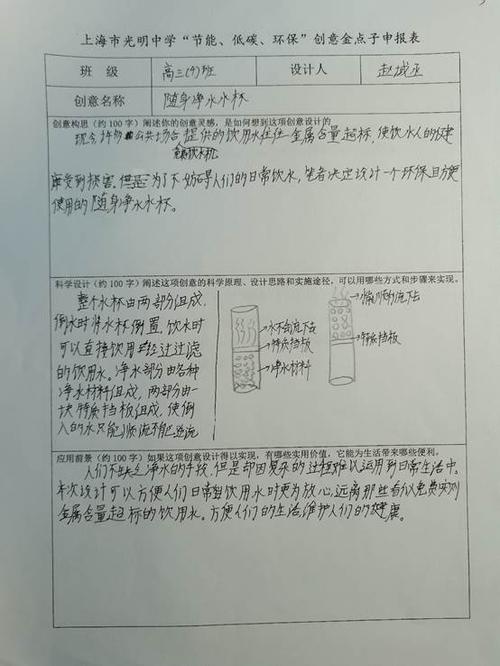 上海市光明中学“节能、低碳、环保”创意金点子申报表
班 级 高三(4)班 设计人 赵斌丞
创意名称 随身净水水杯
创意构思（约 100 字）阐述你的创意灵感，是如何想到这项创意设计的
现今许多公共场合提供的饮用水往往金属含量超标，使饮水人的健
康受到损害。但是为了不妨碍人们的日常饮水，笔者决定设计一个环保且方便
使用的随身净水水杯。
科学设计（约 100 字）阐述这项创意的科学原理、设计思路和实施途径，可以用哪些方式和步骤来实现。
整个水杯由两部分组成，
倒水时将水杯倒置，饮水时
可以直接饮用经过过滤
的饮用水。净水部分由各种
净水材料组成，两部分由一
块特质挡板组成，使倒
入的水只能顺流不能逆流
水不会流下去
特质挡板
净水材料
特质挡板
应用前景（约 100 字）如果这项创意设计得以实现，有哪些实用价值，它能为生活带来哪些便利。
人们不缺乏净水的手段，但是却因复杂的过程难以运用到日常生活中。
本次设计可以方便人们日常饮用水时更为放心，远离那些看似免费实则
金属含量超标的饮用水。方便人们的生活，维护人们的健康。